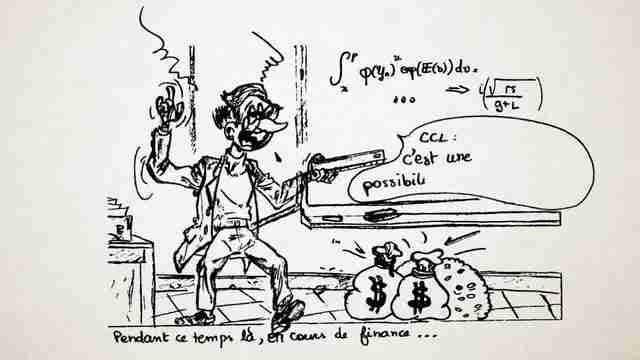 exp(
...
⇒
CCL :
c'est une
possibili
$ $
Pendant ce temps là, en cours de finance ...